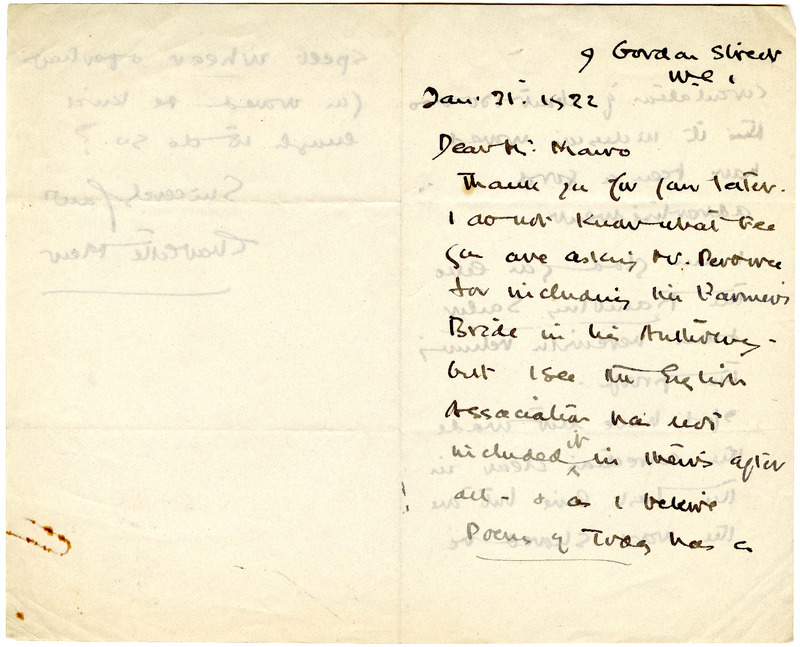 9 Gordon Street
W.C.1
Jan. 21st. 1922
Dear Mr. Monro
Thank you for your letter.
I do not know what fee
you are asking Mr.
for including the Farmer's
Bride in his Anthology -
but I see the English
Association has not
included it in theirs after
all - & as I believe
Poems of Today has a